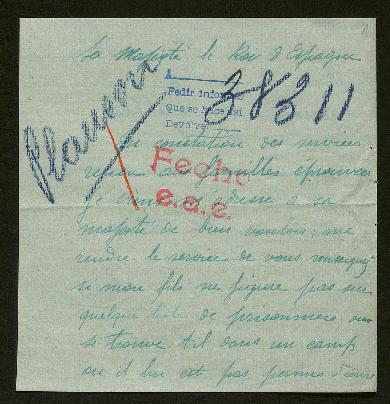 Sa Majesté le Roi d'Espagne
A
Pedir informe
Que se hace así
Devolver
38311
En constation des services
rendus aux familles éprouvées
Je viens m'adresse a sa
majesté de bien vouloir me
rendre le service de vous renseigner
si mon fils ne figure pas sur
quelque liste de prisonniers ou
se trouve t'il dans un camp
ou il lui est pas permis d'écrire
Fecho
e.a.e.